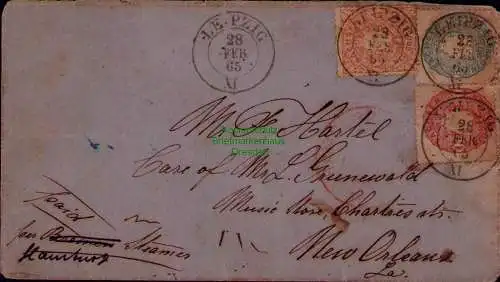 LEIPZIG
28
FEB
65
XI
LEIPZIG
28
FEB
65
XI
LEIPZIG
28
FEB
65
XI
LEIPZIG
28
FEB
XI
Mr. P. Hartel
Briefmarkenhaus
Dresden
Care of Mr. L. Grunewald
Music Store, Chartres str.
New Orleans
La.
paid
per Bremen Steamer
Hamburg